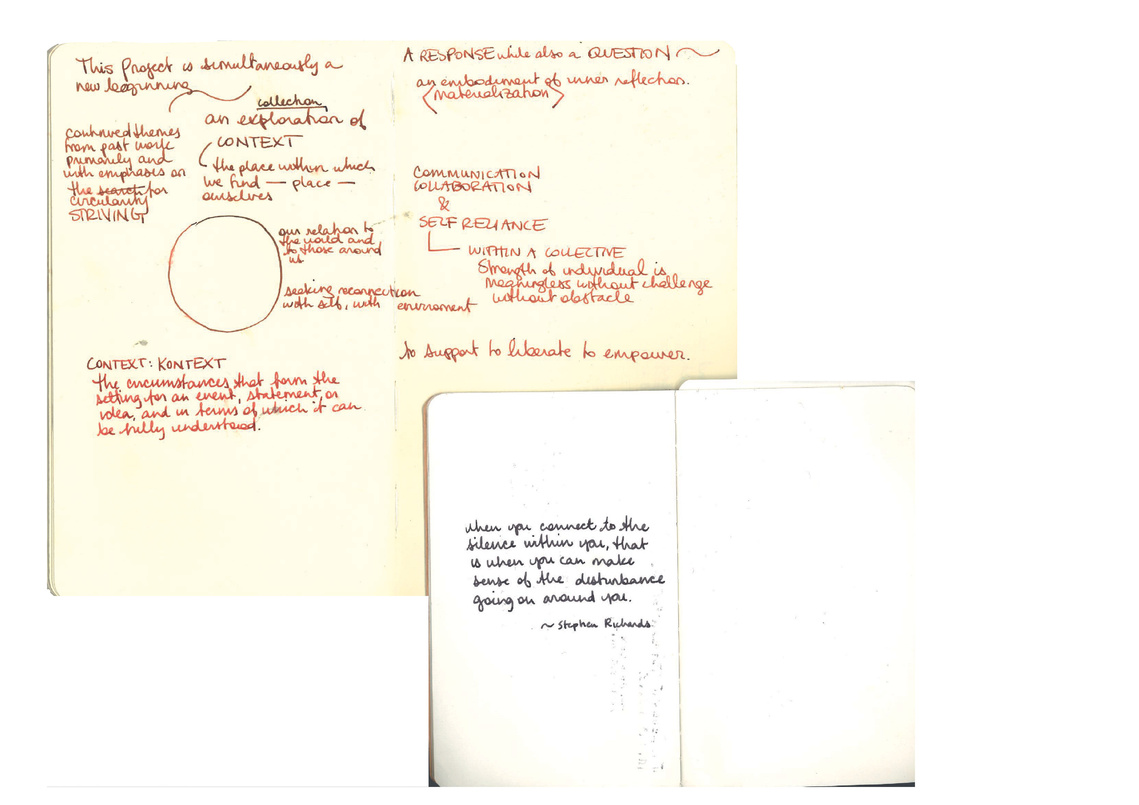 This Project is simultaneously a
new beginning
collection
an exploration of
CONTEXT
the place within which
we find — place —
ourselves
continued themes
from past work
primarily and
with emphasis on
the search for
circularity
STRIVING
our relation to
the world and
to those around
us
seeking reconnection
with self, with enviroment
CONTEXT: KONTEXT
the circumstances that form the
setting for an event, statement, or
idea, and in terms of which it can
be fully understood.
A RESPONSE while also a QUESTION ~
an embodiment of inner reflection.
<materialization>
COMMUNICATION
COLLABORATION
&
SELF RELIANCE
WITHIN A COLLECTIVE
Strength of individual is
meaningless without challenge
without obstacle
to support to liberate to empower.
when you connect to the
silence within you, that
is when you can make
sense of the disturbance
going on around you.
~ Stephen Richards